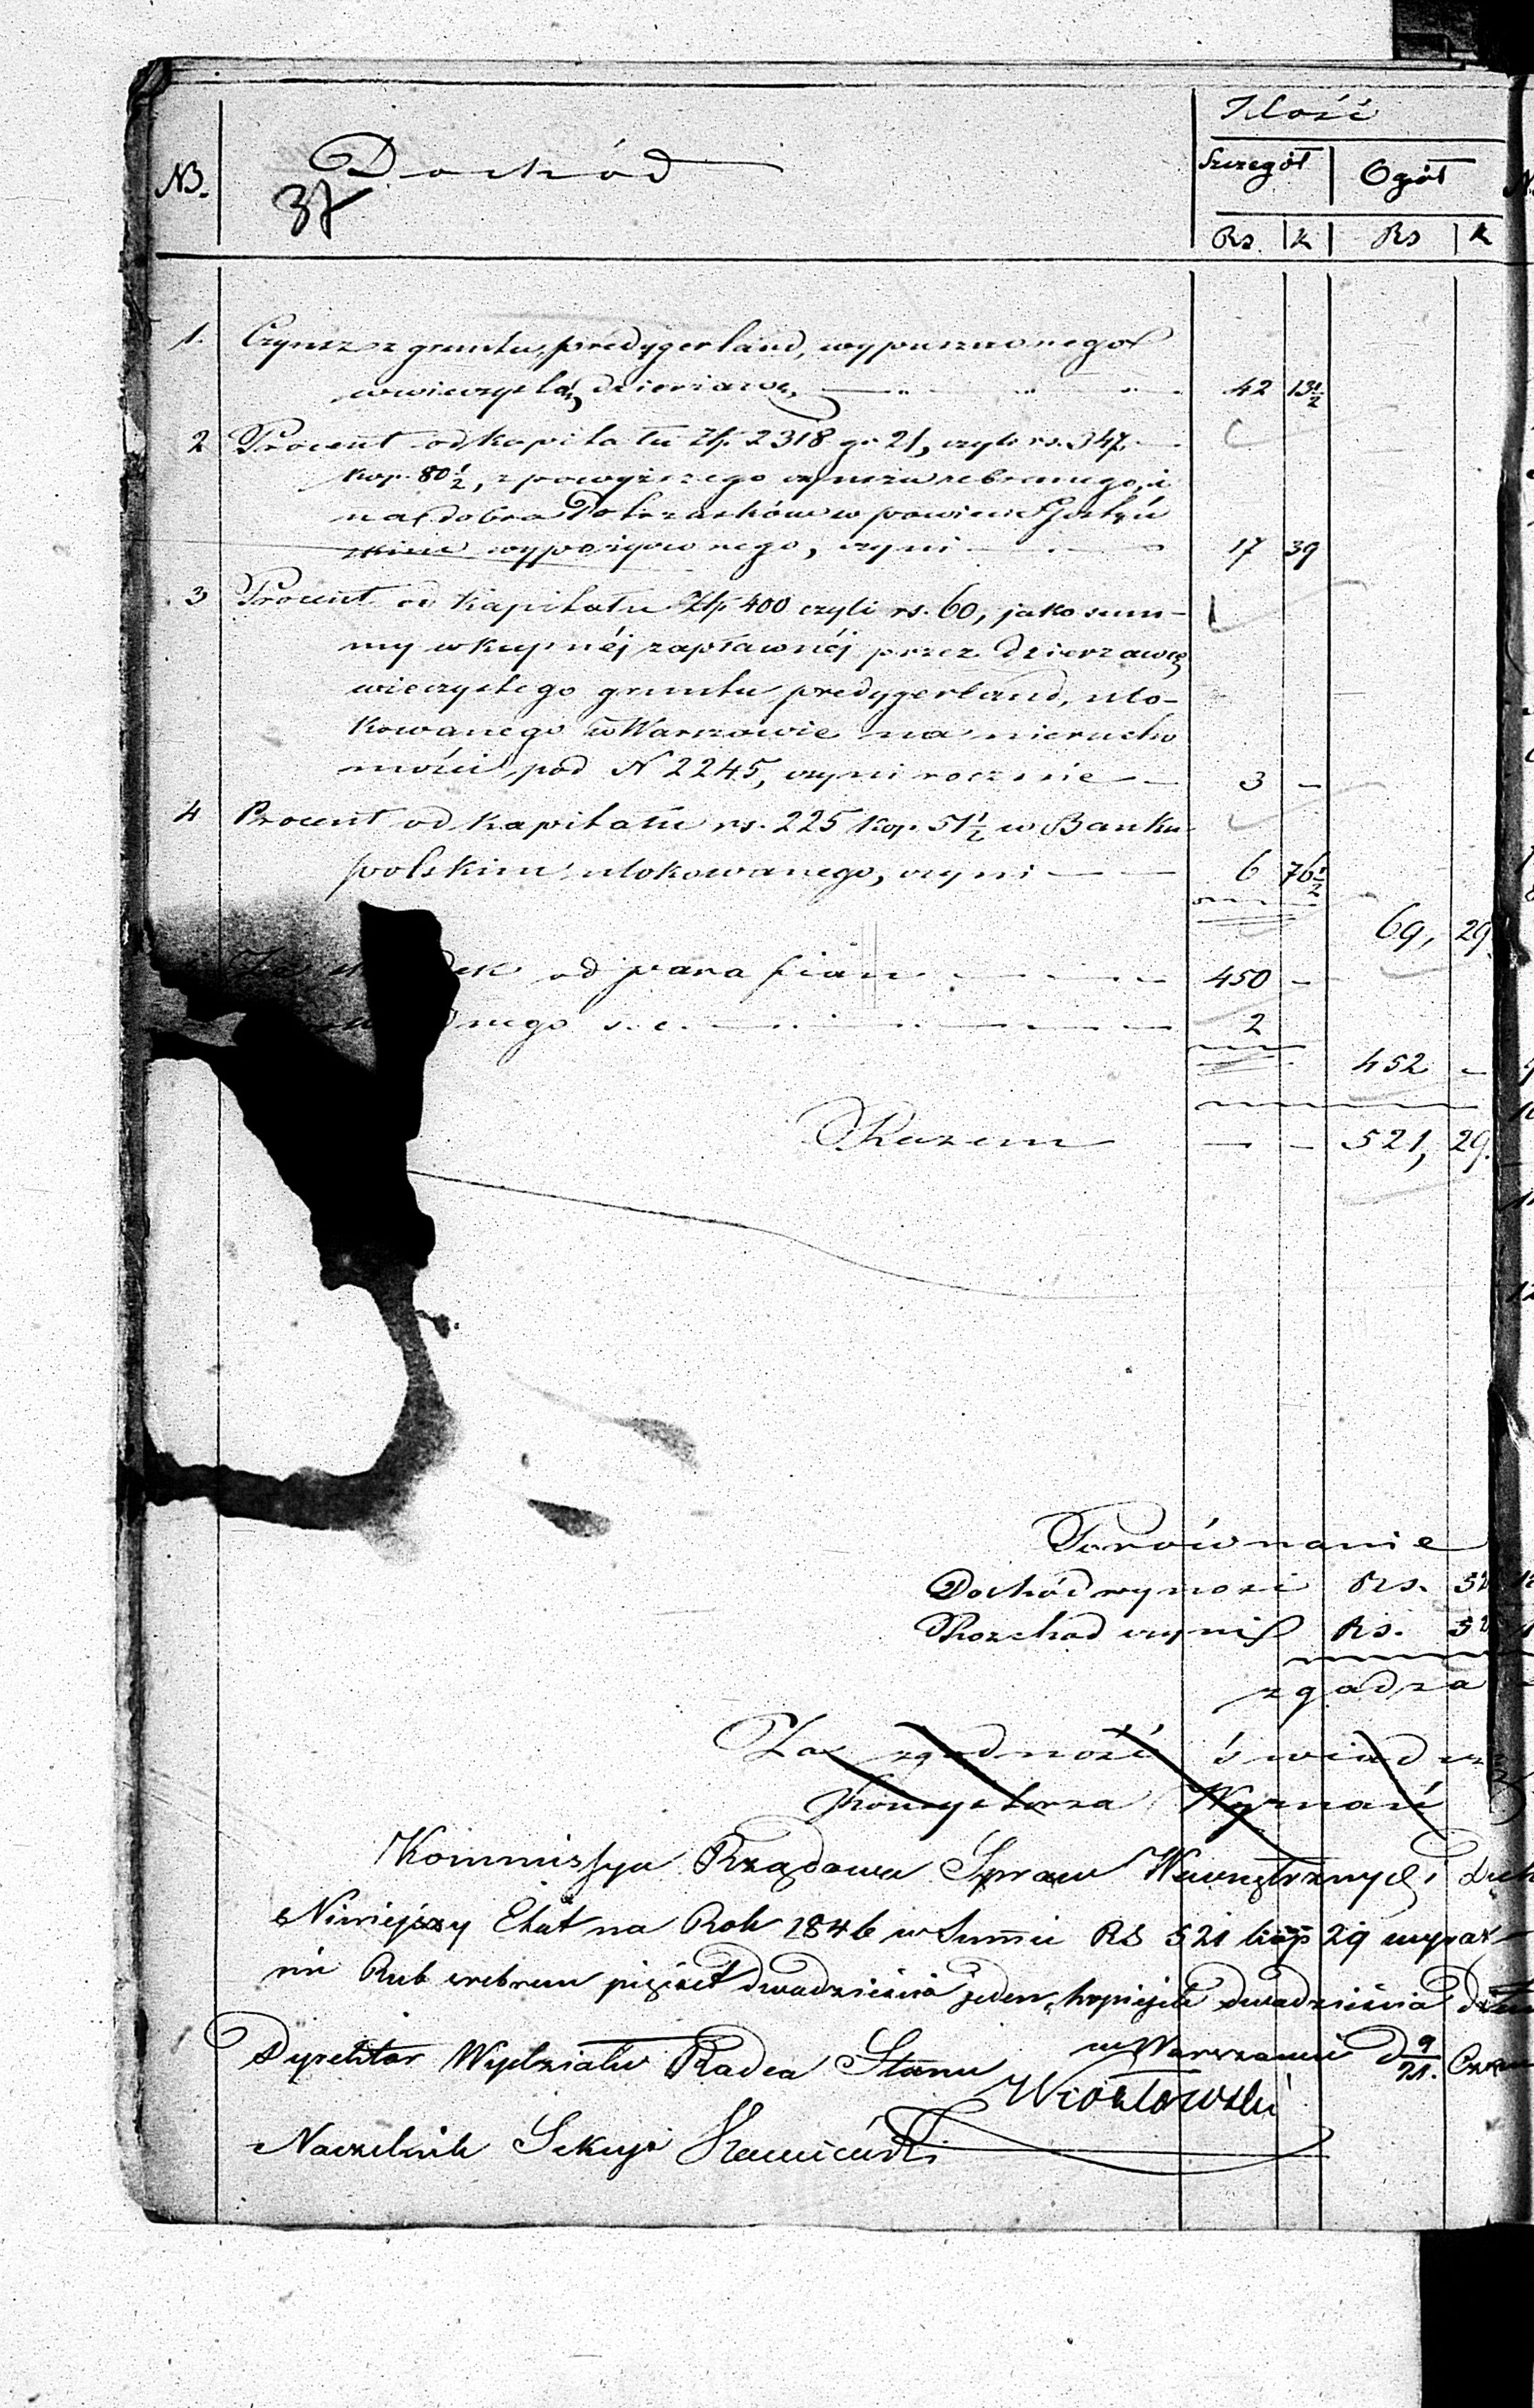 Ilość
NB. Dochód Szczegół Ogół
37
Rs. k Rs k
1. Czynsz z gruntu predygerland, wypuszczonego
w wieczystą dzierżawę 42 13½
2 Procent od kapitału Złp. 2318 gr 21, czyli rs. 347.
kop. 80½, z powyższego czynszu zebranego, i
na dobra w powiecie
wypożyczonego, czyni 17 39
3 Procent od kapitału Złp 400 czyli rs. 60, jako sum-
my wkupnéj zapławnéj przez dzierzawcę
wieczystego gruntu predygerland, ulo-
kowanego w Warszawie na nierucho
mości pod N 2245, czyni rocznie 3 -
4 Procent od kapitału rs. 225 kop. 51½ w Banku
polskim ulokowanego, czyni 6 76½
69, 29.
od parafian 450 -
2
452 -
Razem - - 521, 29.
Porównanie
Dochód wynosi Rs.
Rozchod czyni Rs.
zgadza
Za zgodność świadczy
Konsystorza Wyznań
Kommissya Rządowa Spraw Wewnętrznych i Duch
Niniejszy Etat na Rok 1846 w Summie RS 521 kop 29 wyraź-
nie Rub srebrem pięćset dwadzieścia jeden, kopiejek dwadzieścia
w Warszawie d 9/21.
Dyrektor Wydziału Radca Stanu
Naczelnik Sekcyi